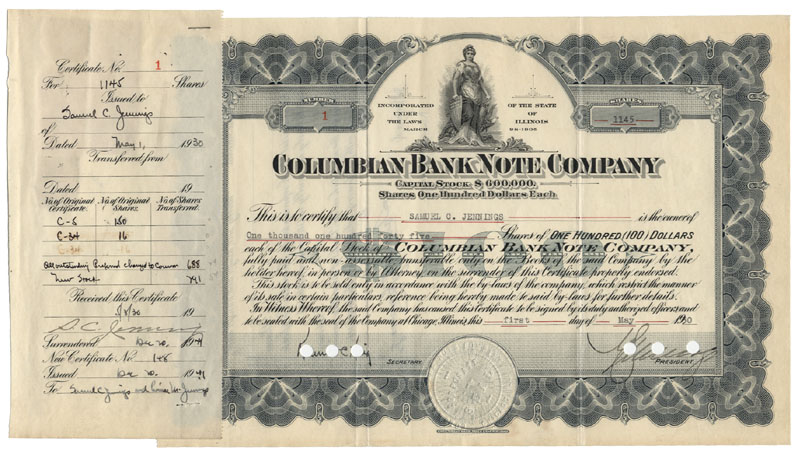 Certificate No. 1
For 1145 Shares
Issued to
Samuel C. Jennings
of
Dated May 1, 1930
Transferred from
Dated 19
No. of Original Certificate. No. of Original Shares. No. of Shares Transferred.
C-5 150
C-34 16
C-34 16
All outstanding Preferred changed to Common 688
New Stock 791
Received this Certificate
5/1/30 19
S. C. Jennings
Surrendered Dec 20, 1941
New Certificate No.
Issued Dec 20, 1941
To Samuel C. Jennings and
NUMBER
1
INCORPORATED UNDER THE LAWS
OF THE STATE OF ILLINOIS
MARCH
SHARES
1145
COLUMBIAN BANK NOTE COMPANY
CAPITAL STOCK $600,000.
Shares, One Hundred Dollars Each.
This is to certify that SAMUEL C. JENNINGS is the owner of
One thousand one hundred forty five Shares of ONE HUNDRED (100) DOLLARS
each of the Capital Stock of COLUMBIAN BANK NOTE COMPANY,
fully paid and non-assessable transferable only on the Books of the said Company by the
holder hereof in person or by Attorney on the surrender of this Certificate properly endorsed.
This stock is to be sold only in accordance with the by-laws of the company, which restrict the manner
of its sale in certain particulars, reference being hereby made to said by-laws for further details.
In Witness Whereof, the said Company has caused this Certificate to be signed by its duly authorized officers and
to be sealed with the seal of the Company at Chicago, Illinois, this first day of May 1930
SECRETARY.
PRESIDENT